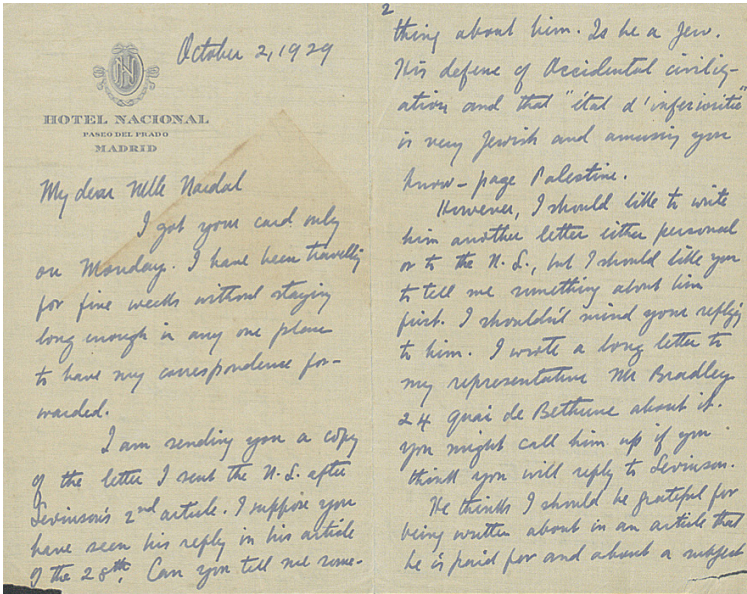 October 2, 1929
HN
HOTEL NACIONAL
PASEO DEL PRADO
MADRID
My dear Mlle Nardal
I got your card only
on Monday. I have been travellig
for five weeks without staying
long enough in any one place
to have my correspondence for-
warded.
I am sending you a copy
of the letter I sent the N.L. after
Levinson's 2nd article. I suppose you
have seen his reply in his article
of the 28th. Can you tell me some-
2
thing about him. Is he a Jew.
His defense of Occidental civiliz-
ation and that "état d'inferiorité"
is very Jewish and amusing you
know – page Palestine.
However, I should like to write
him another letter either personal
or to the N.L., but I should like you
to tell me something about him
first. I shouldn't mind your replyig
to him. I wrote a long letter to
my representative Mr Bradley
24 Quai de Bethune about it.
You might call him up if you
think you will reply to Levinson.
He thinks I should be grateful for
being written about in an article that
he is paid for and about a subject